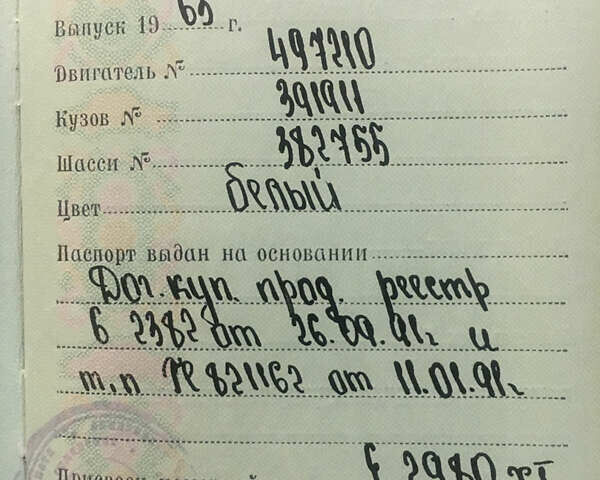 Выпуск 19 69 г.
Двигатель № 497210
Кузов № 391911
Шасси № 382755
Цвет белый
Паспорт выдан на основании
Дог. куп. прод. реестр
6 2382 от 26.09.91г и
т,п № 821162 от 11.01.91г
2980